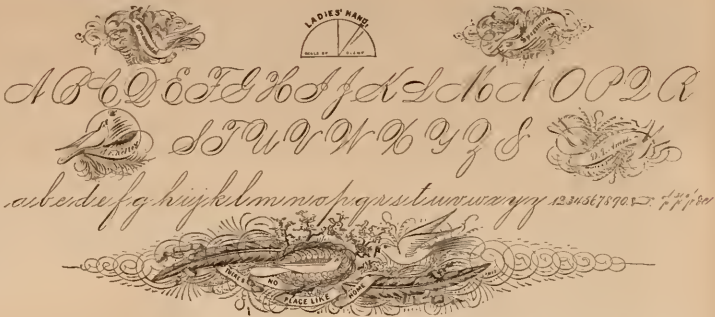 LADIES' HAND.
SCALE OF SLANT
Specimen
A B C D E F G H I J K L M N O P Q R
S T U V W X Y Z &
a b c d e f g h i j k l m n o p q r s t u v w x y z 1234567890.
THERE'S NO PLACE LIKE HOME